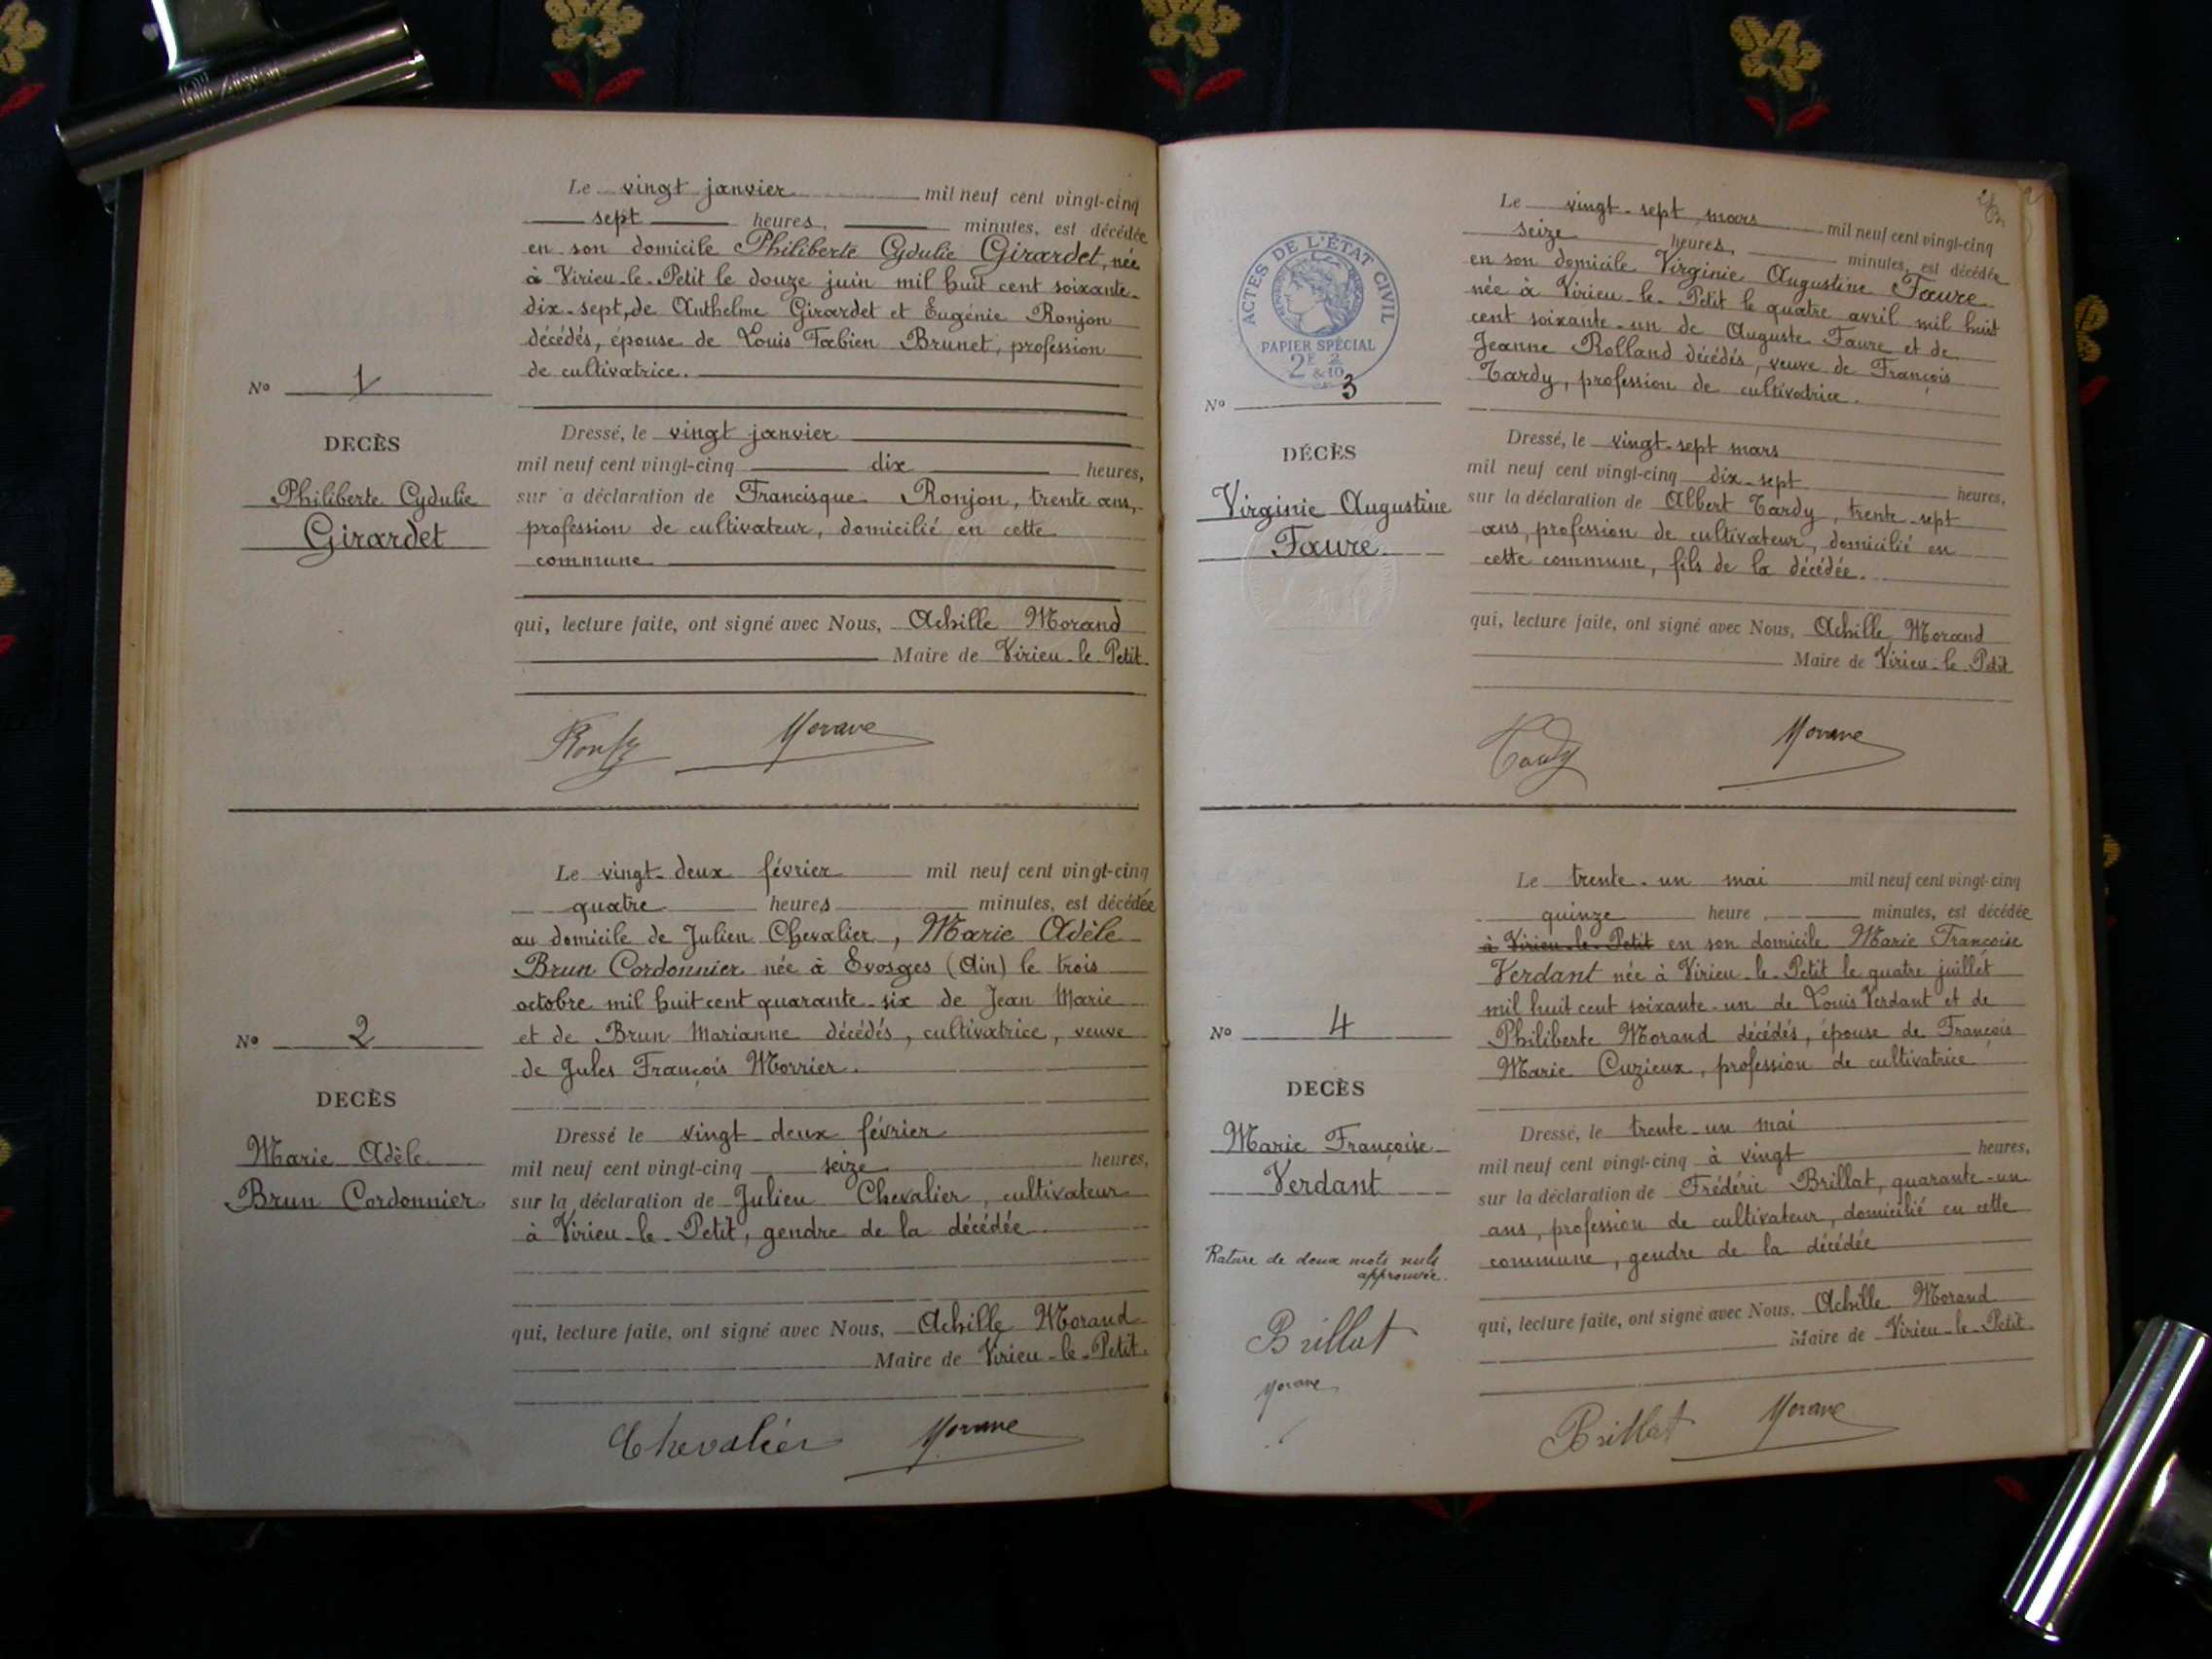 Le vingt janvier mil neuf cent vingt-cinq
sept heures, minutes, est décédée
en son domicile Philiberte Cydulie Girardet, née
à Virieu-le-Petit le douze juin mil huit cent soixante-
dix-sept, de Anthelme Girardet et Eugénie Ronjon
décédés, épouse de Louis Fabien Brunet, profession
de cultivatrice.
No 1
DECÈS
Philiberte Cydulie
Girardet
Dressé, le vingt janvier
mil neuf cent vingt-cinq dix heures,
sur a déclaration de Francisque Ronjon, trente ans,
profession de cultivateur, domicilié en cette
commune
qui, lecture faite, ont signé avec Nous, Achille Morand
Maire de Virieu-le-Petit.
Le vingt-deux février mil neuf cent vingt-cinq
quatre heures minutes, est décédée
au domicile de Julien Chevalier, Marie Adèle
Brun Cordonnier née à Evosges (Ain) le trois
octobre mil huit cent quarante-six de Jean Marie
et de Brun Marianne décédés, cultivatrice, veuve
de Jules François Morrier.
No 2
DECÈS
Marie Adèle
Brun Cordonnier
Dressé le vingt-deux février
mil neuf cent vingt-cinq seize heures,
sur la déclaration de Julien Chevalier, cultivateur
à Virieu-le-Petit, gendre de la décédée
qui, lecture faite, ont signé avec Nous, Achille Morand
Maire de Virieu-le-Petit.
Chevalier
ACTES DE L'ÉTAT CIVIL
PAPIER SPÉCIAL
2F 2
&10
Le vingt-sept mars mil neuf cent vingt-cinq
seize heures, minutes, est décédée
en son domicile Virginie Augustine Faure
née à Virieu-le-Petit le quatre avril mil huit
cent soixante-un de Auguste Faure et de
Jeanne Rolland décédés, veuve de François
Tardy, profession de cultivatrice.
No 3
DÉCÈS
Virginie Augustine
Faure
Dressé, le vingt-sept mars
mil neuf cent vingt-cinq dix-sept heures,
sur la déclaration de Albert Tardy, trente-sept
ans, profession de cultivateur, domicilié en
cette commune, fils de la décédée.
qui, lecture faite, ont signé avec Nous, Achille Morand
Maire de Virieu-le-Petit
Tardy
Le trente-un mai mil neuf cent vingt-cinq
quinze heure, minutes, est décédée
à Virieu-le-Petit en son domicile Marie Françoise
Verdant née à Virieu-le-Petit le quatre juillet
mil huit cent soixante-un de Louis Verdant et de
Philiberte Morand décédés, épouse de François
Marie Cuzieux, profession de cultivatrice
No 4
DECÈS
Marie Françoise
Verdant
Dressé, le trente-un mai
mil neuf cent vingt-cinq à vingt heures,
sur la déclaration de Frédéric Brillat, quarante-un
ans, profession de cultivateur, domicilié en cette
commune, gendre de la décédée
qui, lecture faite, ont signé avec Nous, Achille Morand
Maire de Virieu-le-Petit.
Rature de deux mots nuls
approuvée.
Brillat
Brillat